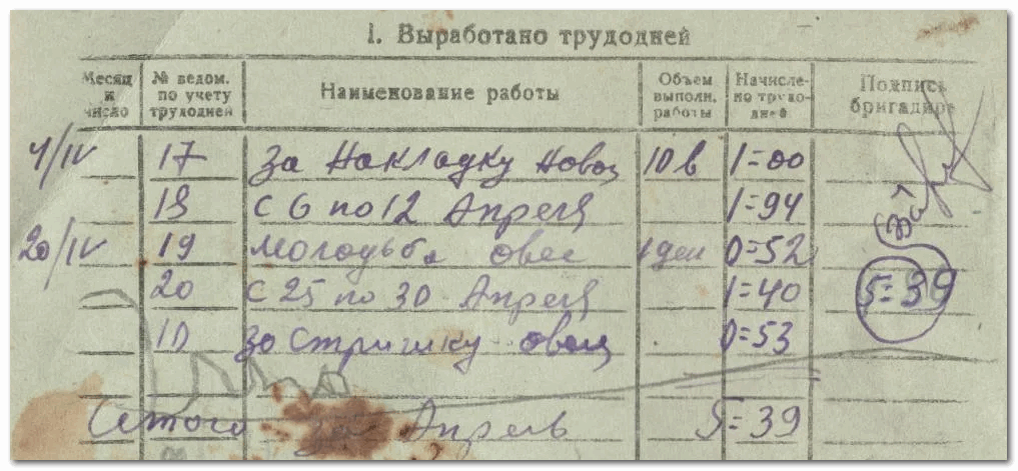 1. Выработано трудодней
Месяц и число № ведом. по учету трудодней Наименование работы Объем выполн. работы Начислено трудодней Подпись бригадира
4/IV 17 За Накладку Новоз 10 в 1=00
18 с 6 по 12 Апреля 1=94
20/IV 19 молодьба овес 1 ден 0=52
20 с 25 по 30 Апреля 1=40
10 за стришку овец 0=53
за 5=39
Итого за Апрель 5=39